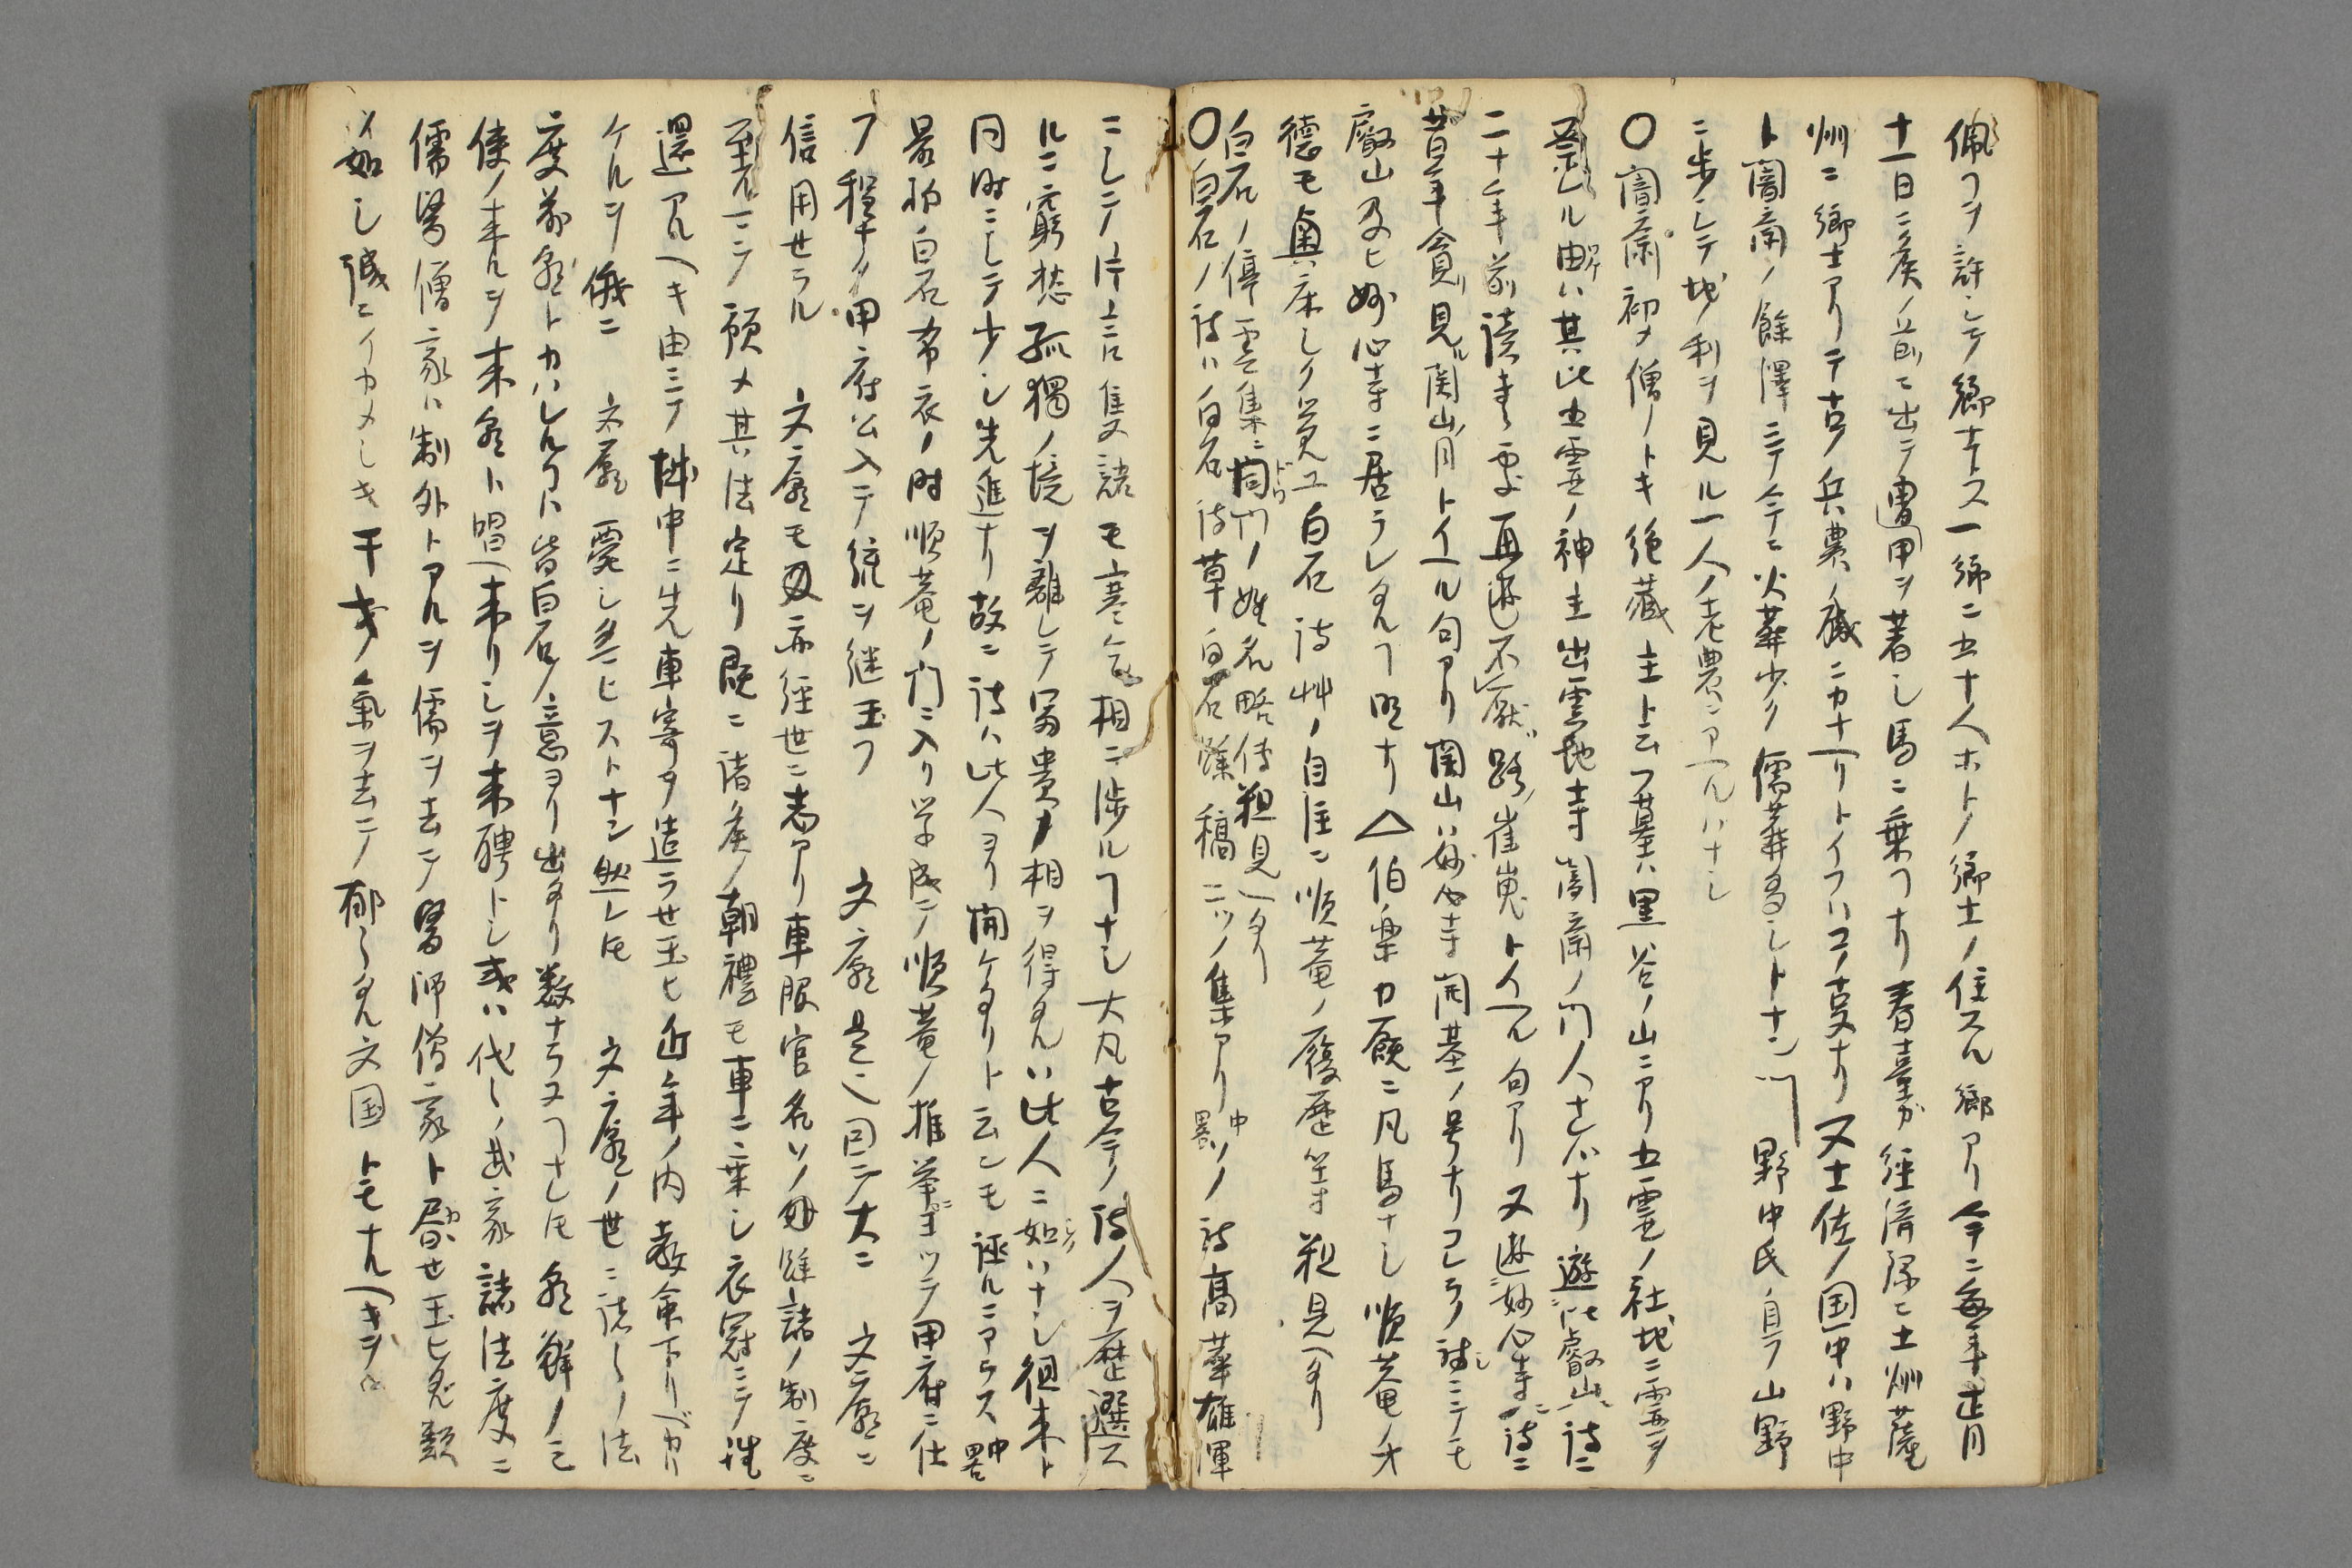 佩フヿヲ許シテ郷士トス一郷ニ五十人ホトノ郷士ノ住スル郷アリ今ニ毎年正月
十一日ニ侯ノ前ニ出テ冑甲ヲ著シ馬ニ乗ルヿナリ春臺カ経済録ニ土州薩
州ニ郷士アリテ古ノ兵農ノ職ニカナヘリトイフハコノ支ナリ又土佐ノ国中ハ野中
ト闇斎ノ餘澤ニテ今ニ火葬少ク儒葬多シトナン 野中氏ノ自ラ山野
ニ歩シテ地利ヲ見ル一人ノ老農ニアヘルハナシ
〇闇斎初メ僧ノトキ絶蔵主ト云フ墓ハ黒谷ノ山ニアリ五霊ノ社地ニ霊ヲ
祭ル由ハ其比五霊ノ神主出雲地寺闇斎ノ門人ナレハナリ遊比叡山詩ニ
二十年前読書處再遊不厭路崔嵬トイヘル句アリ又遊妙心寺詩ニ
昔年貪見関山月トイヘル句アリ関山ハ妙心寺開基ノ号ナリコレラノ詩ニテモ
叡山及ヒ妙心寺ニ居ラレタルヿ明ナリ△伯楽カ厩ニ凡馬ナシ順菴ノ才
徳モ奥床シク覚ユ白石詩艸ノ自注ニ順菴ノ履歴等粗見ヘタリ
白石ノ停雲集ニ同門ノ姓名略傳粗見ヘタリ
〇白石ノ詩ハ白石詩草白石餘稿二ツノ集アリ中略ソノ詩高華雄渾
ニシテ片言隻語モ寒乞相ニ渉ルヿナシ大凡古今ノ詩人ヲ歴選スルニ
窮愁孤獨ノ境ヲ離レテ冨貴ノ相ヲ得タルハ此人ニ如ハナシ徂来ト
同時ニシテ少シ先進ナリ故ニ詩ハ此人ヨリ開ケタリト云ンモ誣ルニアラス中略
最初白石布衣ノ時順菴ノ門ニ入リ学成テ順菴ノ推挙ニヨツテ甲府ニ仕
フ程ナク甲府公入テ統ヲ継玉フ 文廟是也因テ大ニ 文廟ニ
信用セラル 文廟モ又亦経世ニ志アリ車服官名ソノ外諸ノ制度ニ
至ルマテ預メ其法定リ既ニ諸侯ノ朝禮モ車ニ乗シ衣冠ニテ
還アルヘキ由ニテ城中ニ先車寄ヲ造ラセ玉ヒ近年ノ内教命下リヘカリ
ケルヲ俄ニ 文廟薨シ玉ヒストナン然レ𪜈 文廟ノ世ニ諸ノ法
度前廟トカハレルヿハ皆白石ノ意ヨリ出タリ数ナラヌヿナレ𪜈朝鮮ノ三
使ノ来ルヲ来朝ト唱ヘ来リシヲ来聘トシ或ハ代々ノ武家諸法度ニ
儒醫僧家ハ制外トアルヲ儒ヲ去テ醫師僧家ト昼セ玉ヒタル類
ノ如シ誠ニイカメシキ干戈ノ氣ヲ去テ郁々タル文国トモナルヘキヲ